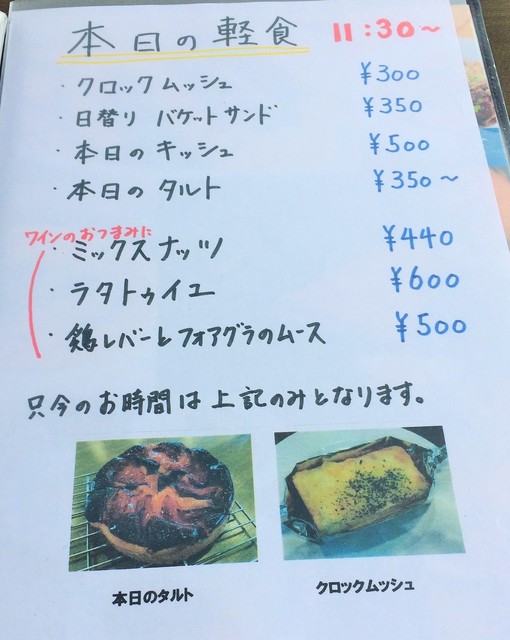 本日の軽食 11:30~
・クロックムッシュ ¥300
・日替り バケットサンド ¥350
・本日のキッシュ ¥500
・本日のタルト ¥350~
ワインのおつまみに
・ミックスナッツ ¥440
・ラタトゥイユ ¥600
・鶏レバーとフォアグラのムース ¥500
只今のお時間は上記のみとなります。
本日のタルト
クロックムッシュ